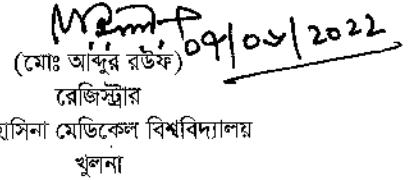 ০৭/০৬/২০২২
(মোঃ আব্দুর রউফ)
রেজিস্ট্রার
হাসিনা মেডিকেল বিশ্ববিদ্যালয়
খুলনা